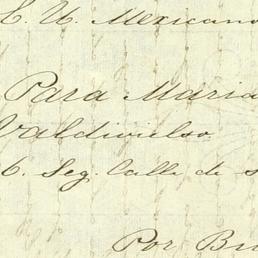 E. U. Mexicano
Para Maria
Valdivielso
6. Seg. Calle de
Por